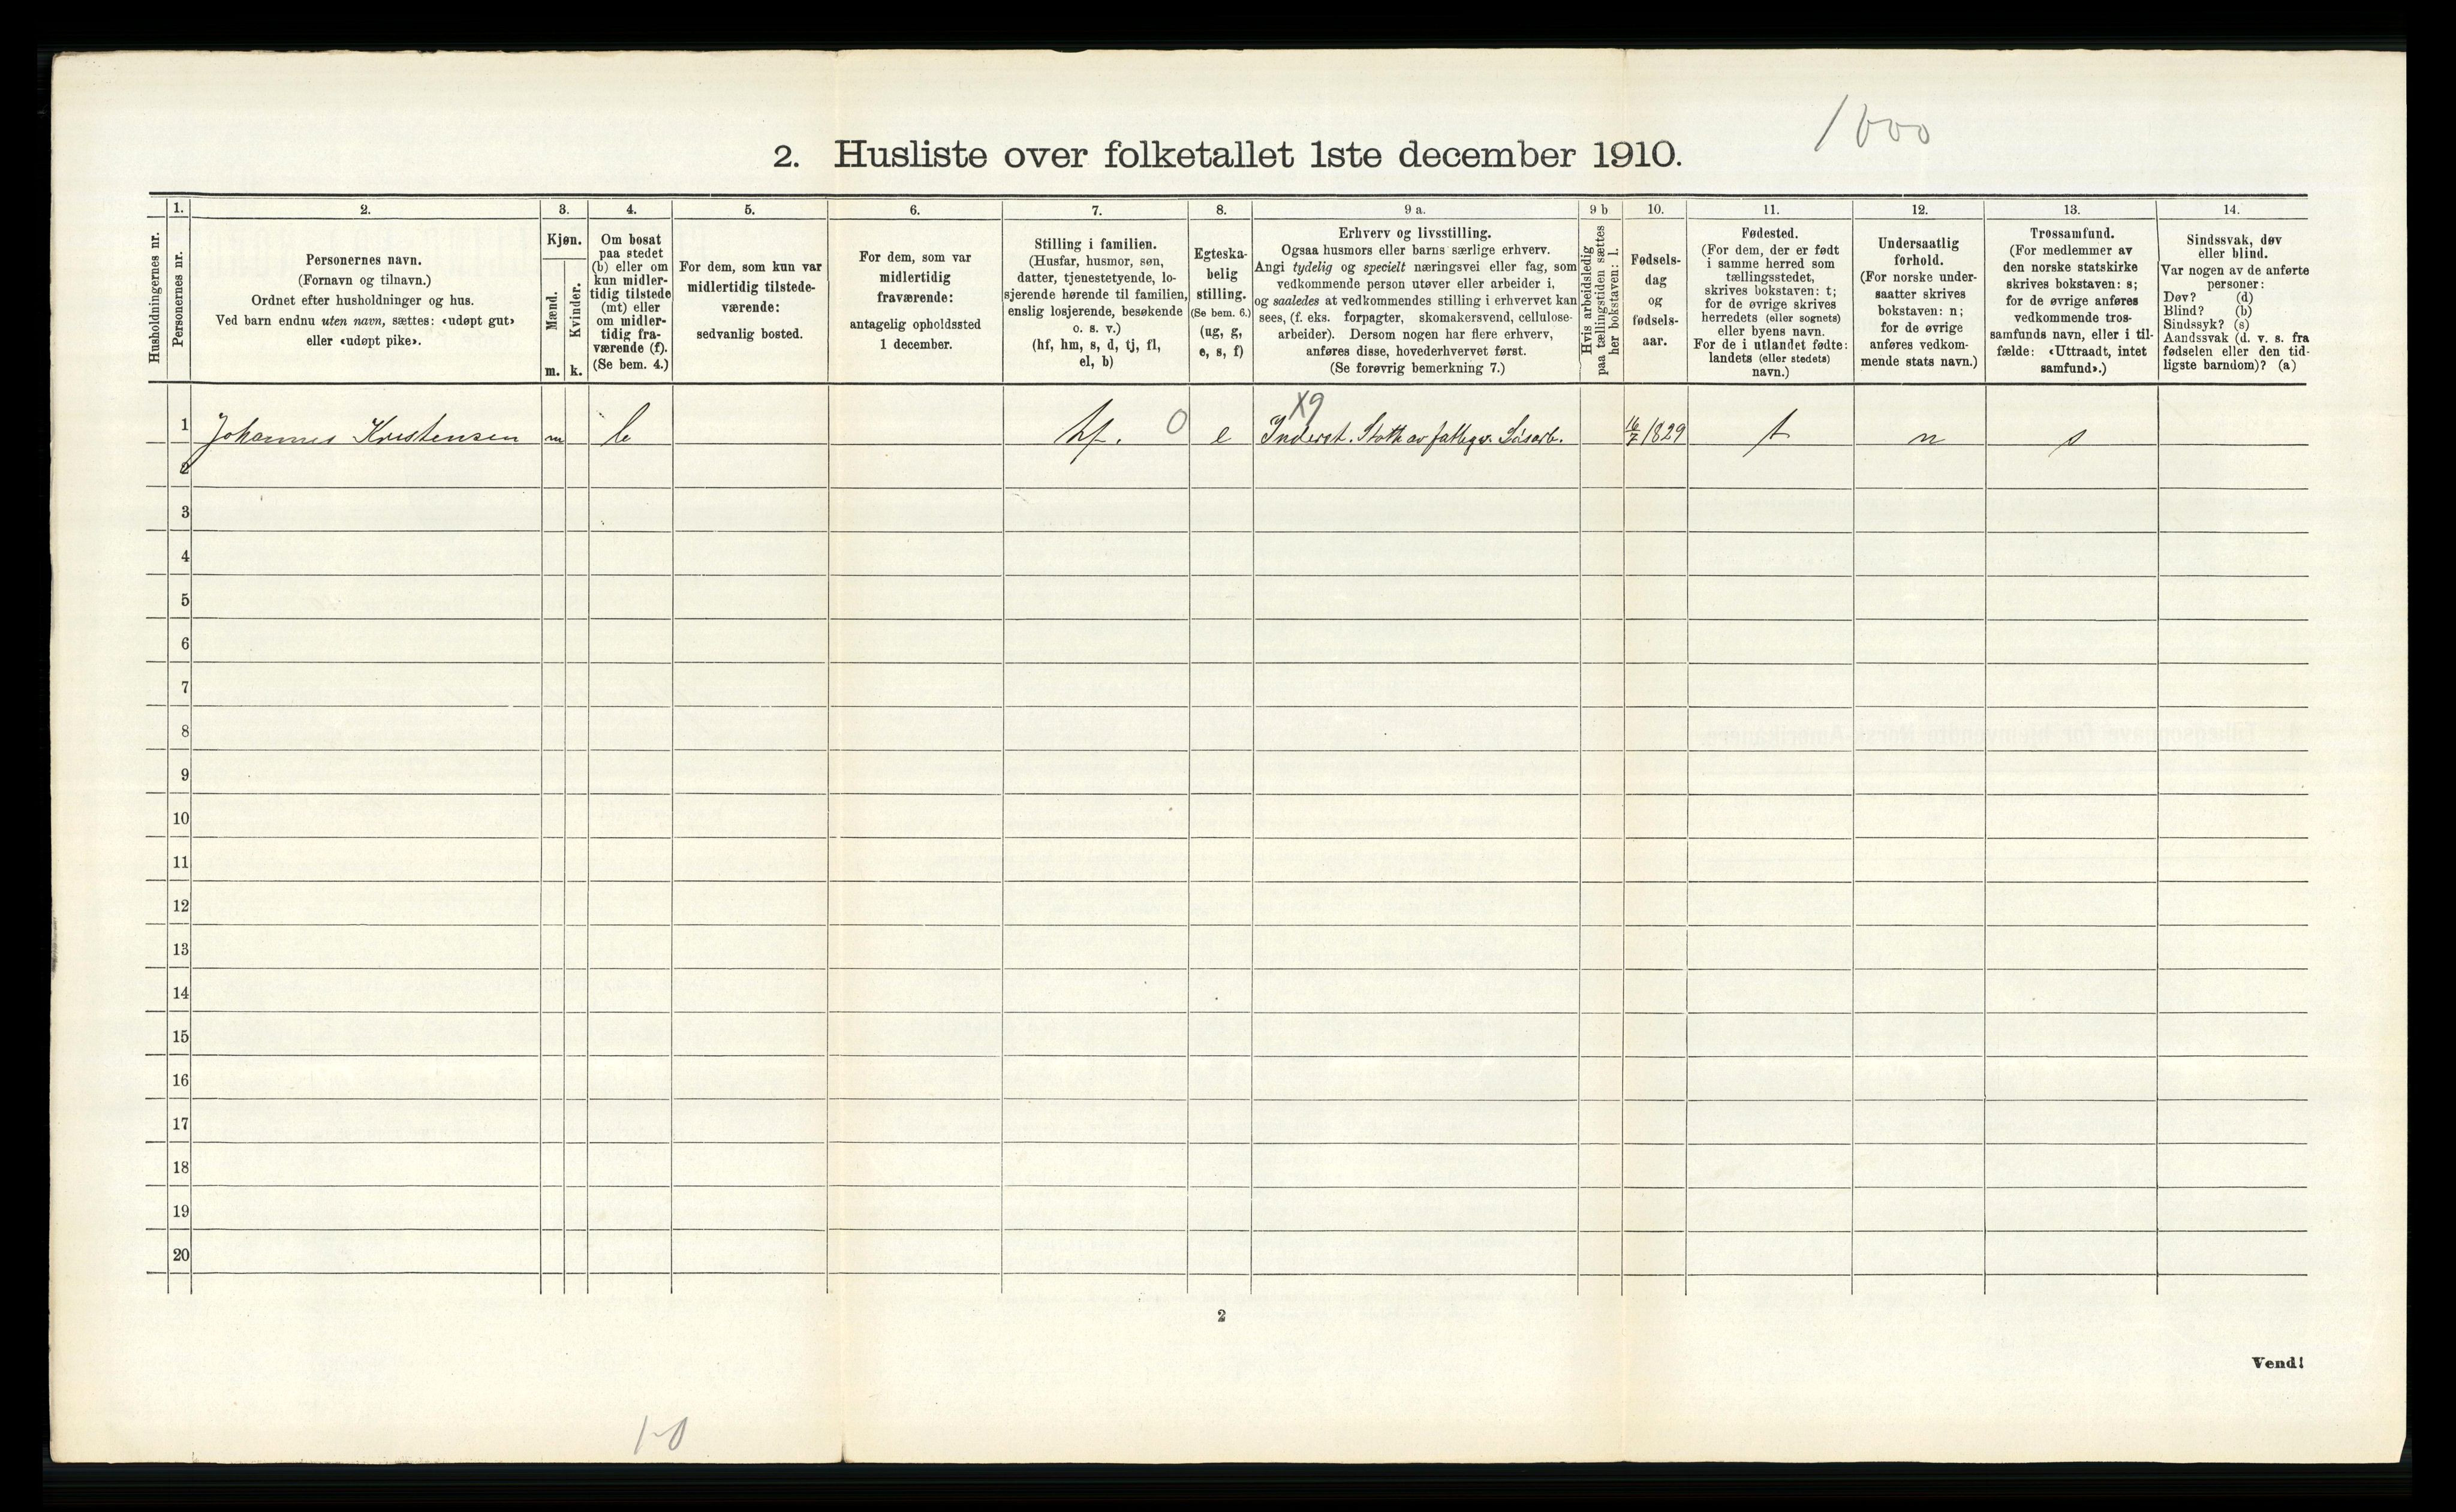 1000
2. Husliste over folketallet 1ste december 1910.
Husholdningernes nr.
1.
Personernes nr.
2.
Personernes navn.
(Fornavn og tilnavn.)
Ordnet efter husholdninger og hus.
Ved barn endnu uten navn, sættes: «udøpt gut»
eller «udøpt pike».
3.
Kjøn.
Mænd.
Kvinder.
m. k.
4.
Om bosat
paa stedet
(b) eller om
kun midler-
tidig tilstede
(mt) eller
om midler-
tidig fra-
værende (f).
(Se bem. 4.)
5.
For dem, som kun var
midlertidig tilstede-
værende:
sedvanlig bosted.
6.
For dem, som var
midlertidig
fraværende:
antagelig opholdssted
1 december.
7.
Stilling i familien.
(Husfar, husmor, søn,
datter, tjenestetyende, lo-
sjerende hørende til familien,
enslig losjerende, besøkende
o. s. v.)
(hf, hm, s, d, tj, fl,
el, b)
8.
Egteska-
belig
stilling.
(Se bem. 6.)
(ug, g,
e, s, f)
9 a.
Erhverv og livsstilling.
Ogsaa husmors eller barns særlige erhverv.
Angi tydelig og specielt næringsvei eller fag, som
vedkommende person utøver eller arbeider i,
og saaledes at vedkommendes stilling i erhvervet kan
sees, (f. eks. forpagter, skomakersvend, cellulose-
arbeider). Dersom nogen har flere erhverv,
anføres disse, hovederhvervet først.
(Se forøvrig bemerkning 7.)
9 b
Hvis arbeidsledig
paa tællingstiden sættes
her bokstaven: l.
10.
Fødsels-
dag
og
fødsels-
aar.
11.
Fødested.
(For dem, der er født
i samme herred som
tællingsstedet,
skrives bokstaven: t;
for de øvrige skrives
herredets (eller sognets)
eller byens navn.
For de i utlandet fødte:
landets (eller stedets)
navn.)
12.
Undersaatlig
forhold.
(For norske under-
saatter skrives
bokstaven: n;
for de øvrige
anføres vedkom-
mende stats navn.)
13.
Trossamfund.
(For medlemmer av
den norske statskirke
skrives bokstaven: s;
for de øvrige anføres
vedkommende tros-
samfunds navn, eller i til-
fælde: «Uttraadt, intet
samfund».)
14.
Sindssvak, døv
eller blind.
Var nogen av de anførte
personer:
Døv? (d)
Blind? (b)
Sindssyk? (s)
Aandssvak (d. v. s. fra
fødselen eller den tid-
ligste barndom)? (a)
X9
1 Johannes Kristensen m b hf. 0 e Inderst. Støtte av fattigv. 16/7 1829 t n s
2
3
4
5
6
7
8
9
10
11
12
13
14
15
16
17
18
19
20
2
Vend!
1-0